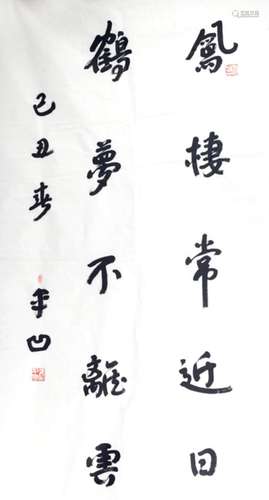 鳳棲常近日
鶴夢不離雲
己丑春 平凹